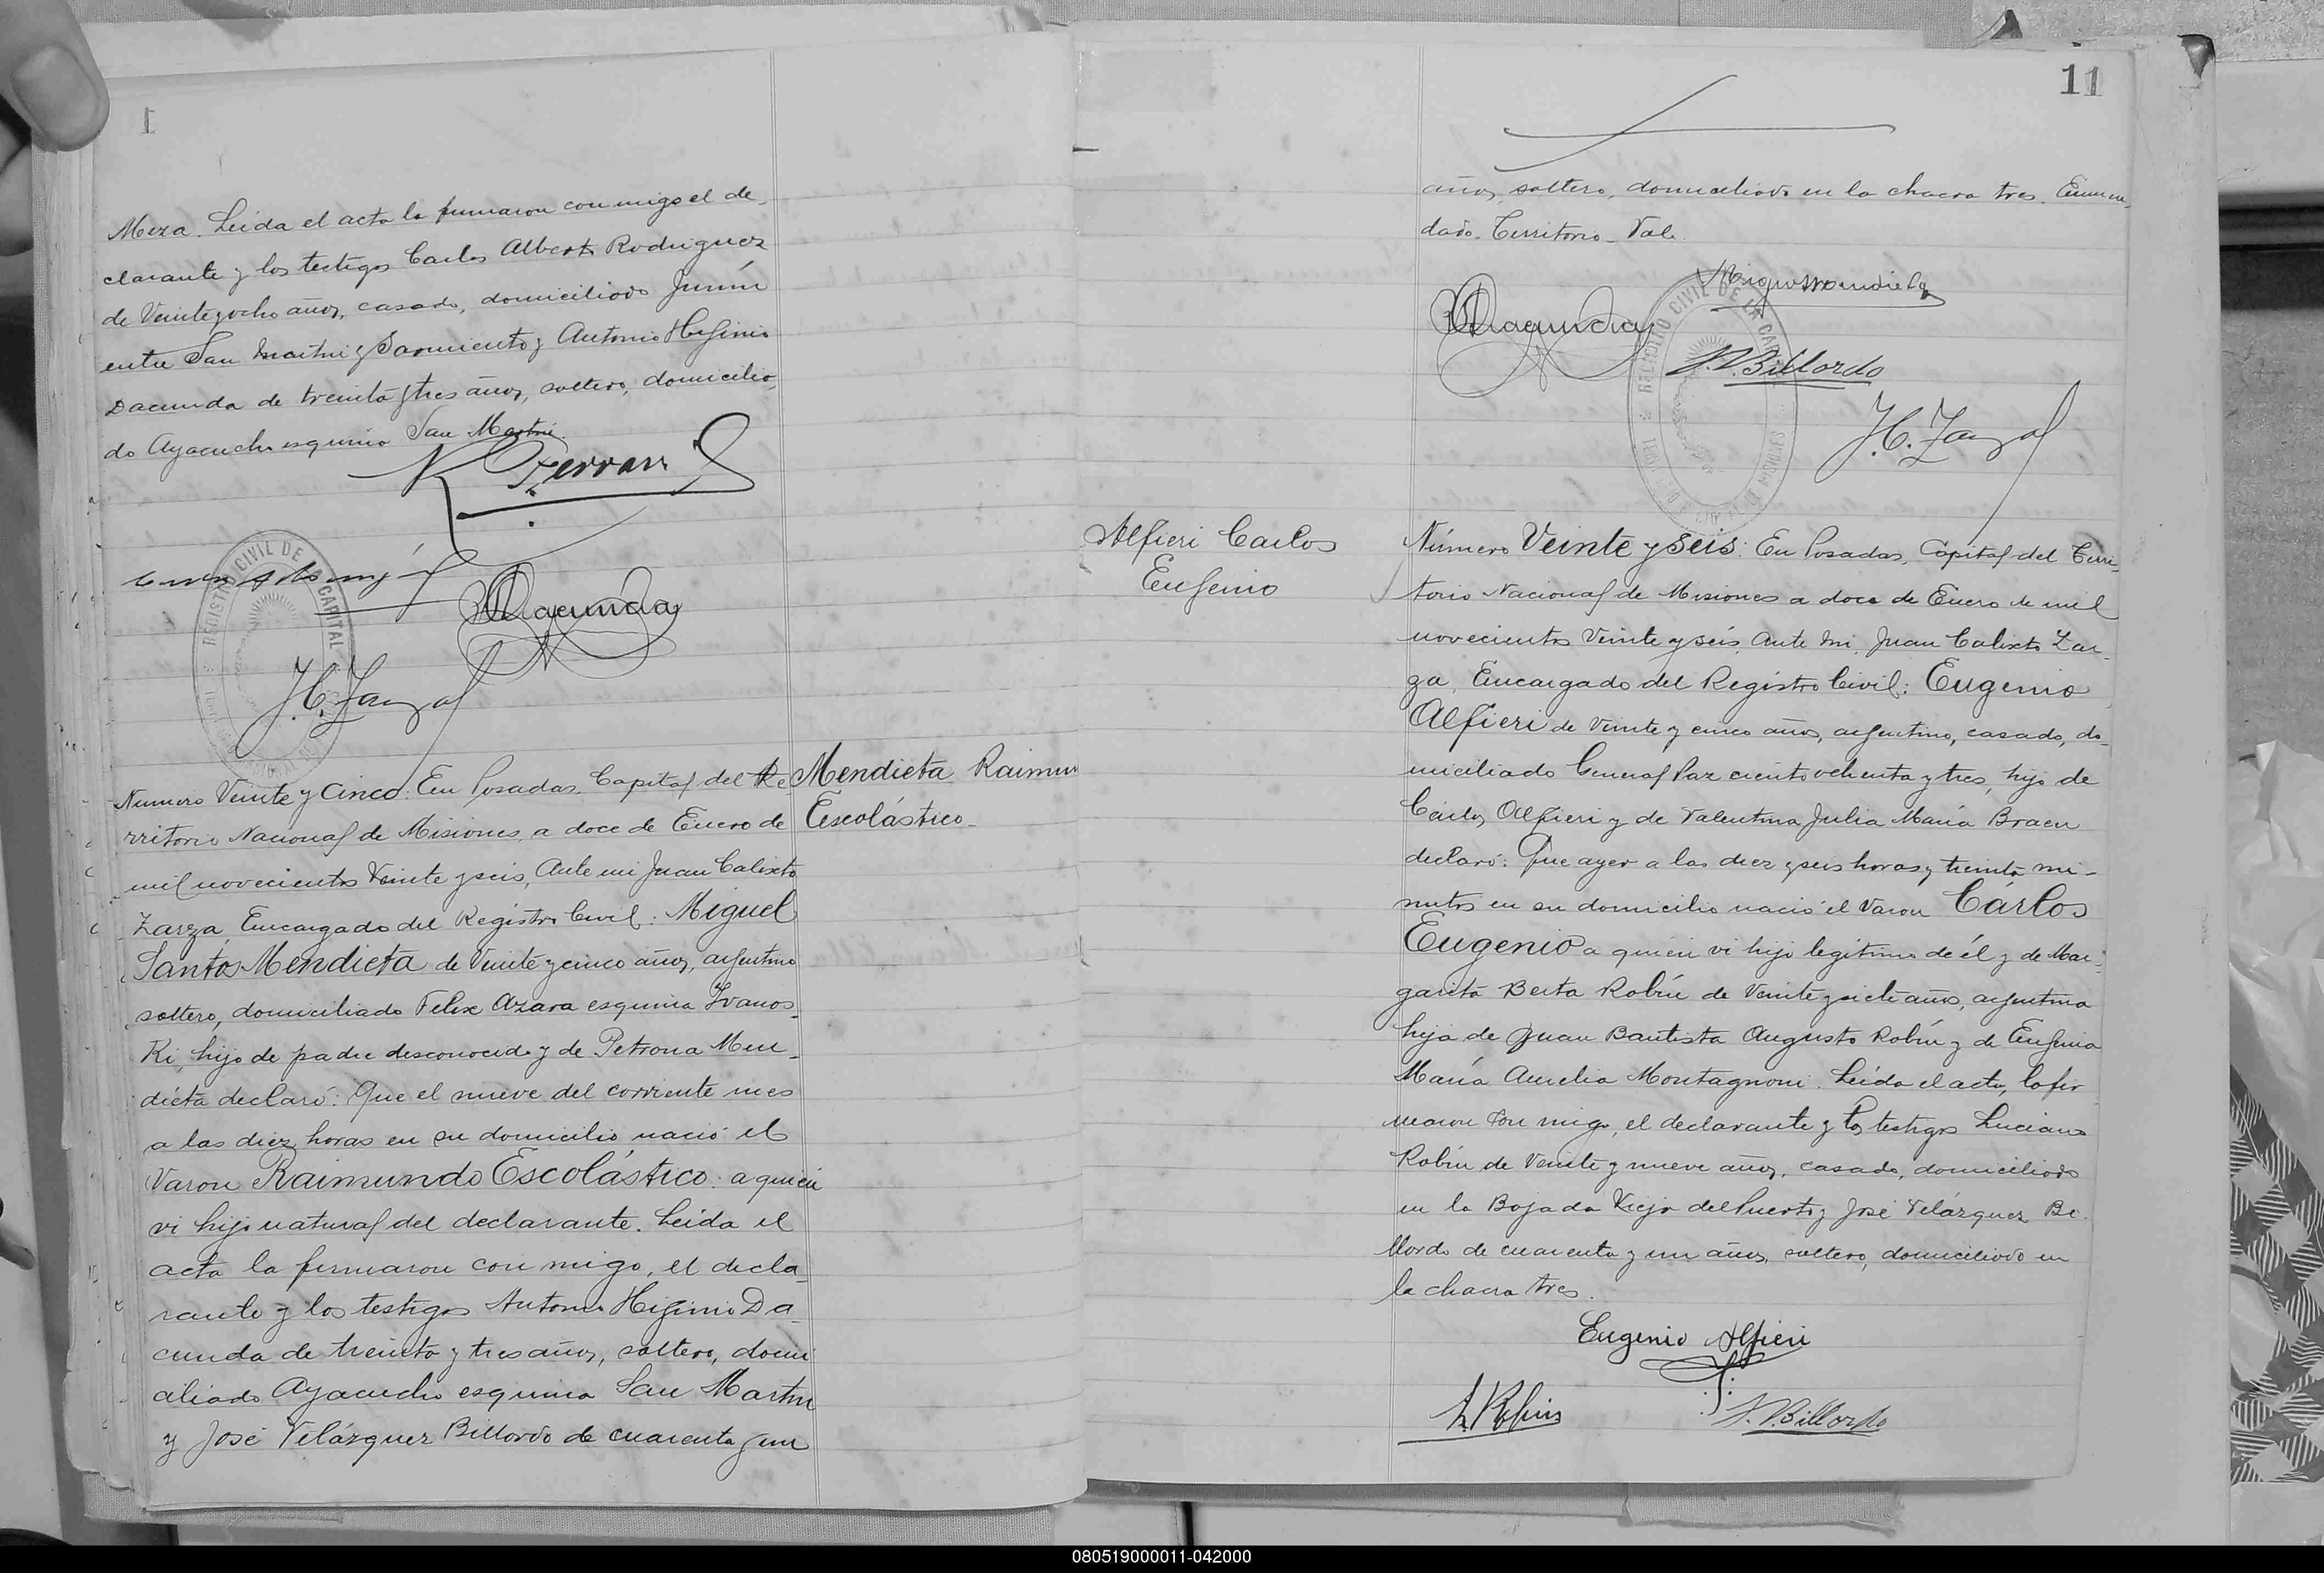 Meza. Leida el acta la firmaron con migo el de_
clarante y los testigos Carlos Alberto Rodriguez
de Veinte y ocho años, casado, domiciliado Junín
entre San Martin y Sarmiento y Antonio Higinio
Dacunda de treinta y tres años, soltero, domicilia_
do Ayacucho esquina San Martin.
R Ferrari
REGISTRO CIVIL DE LA CAPITAL
Dacunda
J.C. Zarza
Mendieta Raimun
Escolástico_
Numero Veinte y Cinco: En Posadas, Capital del Te
rritorio Nacional de Misiones, a doce de Enero de
mil novecientos Veinte y seis, Ante mi Juan Calixto
Zarza, Encargado del Registro Civil: Miguel
Santos Mendieta de Veinte y cinco años, argentino
soltero, domiciliado Felix Azara esquina Ivanos_
Ki, hijo de padre desconocido y de Petrona Men_
dieta declaró: Que el nueve del corriente mes
a las diez horas en su domicilio nació el
Varon Raimundo Escolástico: a quien
vi hijo natural del declarante. Leida el
acta la firmaron con migo, el decla_
rante y los testigos Antonio Higinio Da_
cunda de treinta y tres años, soltero, domi
ciliado Ayacucho esquina San Martin
y José Velázquez Billordo de cuarenta y un
11
años, soltero, domiciliado en la chacra tres. Enmen_
dado_Territorio_Vale.
Miguel S Mendieta
Dacunda
REGISTRO CIVIL DE LA CAPITAL
MISIONES
J.V. Billordo
J.C. Zarza
Alfieri Carlos
Eugenio
Número Veinte y seis: En Posadas, Capital del Terri_
torio Nacional de Misiones a doce de Enero de mil
novecientos Veinte y seis, Ante mi, Juan Calixto Zar_
za, Encargado del Registro Civil: Eugenio
Alfieri de veinte y cinco años, argentino, casado, do_
miciliado General Paz ciento ochenta y tres, hijo de
Cárlos Alfieri y de Valentina Julia María Braen
declaró: Que ayer a las diez y seis horas y treinta mi_
nutos en su domicilio nació el Varon Cárlos
Eugenio a quien vi hijo legítimo de él y de Mar_
garita Berta Robín de Veinte y siete años, argentina
hija de Juan Bautista Augusto Robín y de Eugenia
María Aurelia Montagnoni. Leída el acta, la fir
maron con migo, el declarante y los testigos Luciano
Robín de Veinte y nueve años, casado, domiciliado
en la Bajada Vieja del Puerto y José Velázquez Bi_
llordo de cuarenta y un años, soltero, domiciliado en
la chacra tres.
Eugenio Alfieri
L. Robin
J.V. Billordo
080519000011-042000